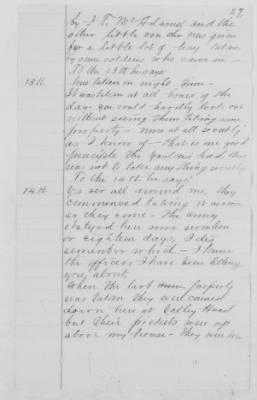 27
by J. T. McAdamed and the
other little one the was given
for a little lot of hay taken
by some soldiers who came on
To the 13th he says
13th. was taken in night time -
It was taken at all hours of the
day. You could hardly look out
without seeing them taking some
property - none at all secretly
as I know of - that is one good
principle the had they
was not to take any thing secretly
To the 14th he says:
14th. Yes sir all around me, they
commenced taking it as soon
as they come - The army
stayed here some seventeen
or eighteen days, I dis
remember which - I know
the officers I have been telling
you about.
When the last property
was taken they were camped
down here at Colley Head
but their pickets were up
above my house - they were in